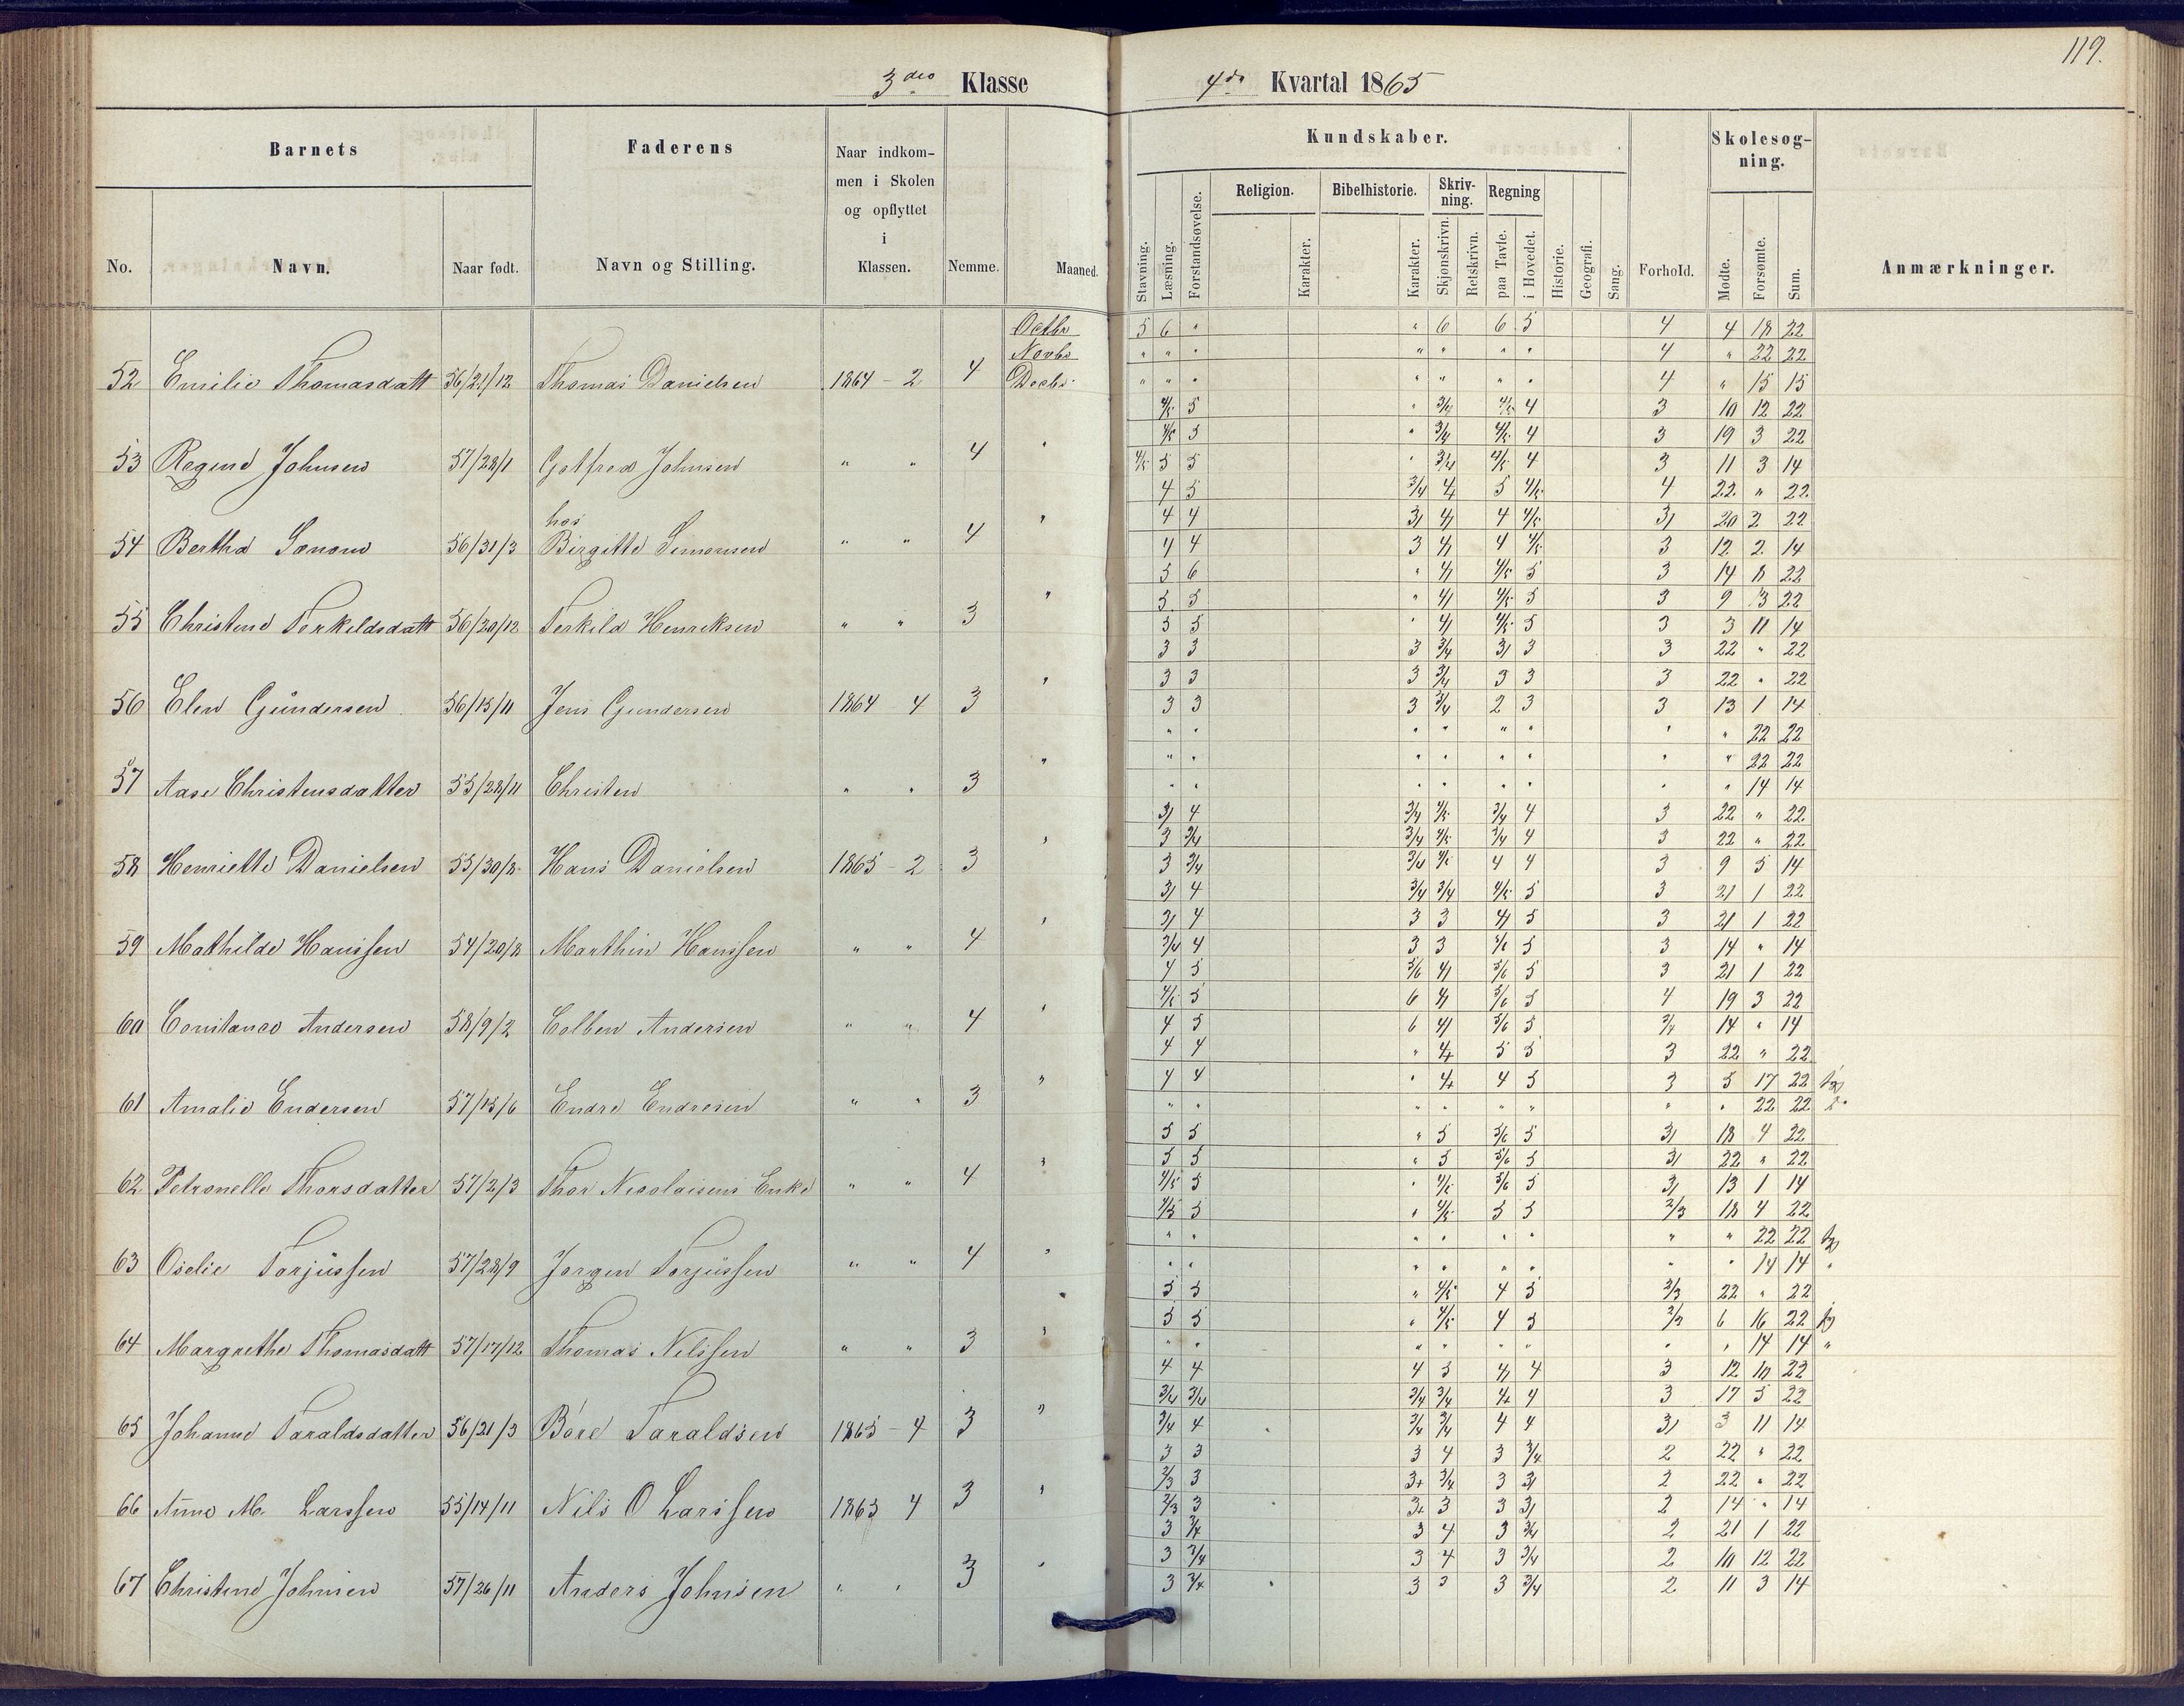 119.
3die Klasse 4de Kvartal 1865
Barnets Faderens Naar indkommen i Skolen og opflyttet i Klassen. Nemme. Maaned. Kundskaber. Forhold. Skolesøgning. Anmærkninger.
No. Navn. Naar født. Navn og Stilling. Stavning. Læsning. Forstandsøvelse. Religion. Karakter. Bibelhistorie. Karakter. Skrivning. Skjønskrivn. Retskrivn. Regning paa Tavle. i Hovedet. Historie. Geografi. Sang. Mødte. Forsømte. Sum.
Octbr 5 6 " " 6 6 5 4 4 18 22
Novbr " " " " " " " 4 " 22 22
52 Emilie Thomasdatt 56/21/12 Thomas Danielsen 1864 - 2 4 Decbr " " " " " " " 4 " 15 15
4/5 5 " 3/4 4/5 4 3 10 12 22
4/5 5 " 3/4 4/5 4 3 19 3 22
53 Regine Johnsen 57/28/1 Gotfred Johnsen " " 4 " 4/5 5 5 " 3/4 4/5 4 3 11 3 14
4 5 3/4 4 5 4/5 4 22 " 22
hos 4 4 3/ 4/ 4 4/5 3/ 20 2 22
54 Bertha 56/31/3 Birgitte Simonsen " " 4 " 4 4 3 4/ 4 4/5 3 12 2 14
5 6 " 4/ 4/5 5 3 14 8 22
5 5 " 4/ 4/5 5 3 9 13 22
55 Christene Terkildsdatt 56/20/12 Terkild Henriksen " " 3 " 5 5 " 4/ 4/5 5 3 3 11 14
3 3 3 3/4 3/ 3 3 22 " 22
3 3 3 3/4 3 3 3 22 " 22
56 Elen Gundersen 56/15/11 Jens Gundersen 1864 - 4 3 " 3 3 3 3/4 2 3 3 13 1 14
" " " " " " " " 22 22
" " " " " " " " 22 22
57 Aase Christensdatter 55/28/11 Christen " " 3 " " " " " " " " " 14 14
3/ 4 3/4 4/5 3/4 4 3 22 " 22
3 3/4 3/4 4/5 3/4 4 3 22 " 22
58 Henriette Danielsen 55/30/8 Hans Danielsen 1865 - 2 3 " 3 3/4 3/4 4/5 4 4 3 9 5 14
3/ 4 3/4 3/4 4/5 5 3 21 1 22
3/ 4 3 3 4/ 5 3 21 1 22
59 Mathilde Hanssen 54/20/8 Marthin Hanssen " " 4 " 3/4 4 3 3 5/6 5 3 14 " 14
4 5 5/6 4/ 5/6 5 3 21 1 22
4/5 5 6 4/ 5/6 5 4 19 3 22
60 Constance Andersen 58/9/2 Colben Andersen " " 4 " 4 5 6 4/ 5/6 5 3/4 14 " 14
4 4 " 4+ 5 5 3 22 " 22
4 4 " 4+ 4 5 3 5 17 22
61 Amalie Endersen 57/15/6 Endre Endresen " " 3 " " " " " " " " " 22 22
5 5 " 5 5/6 5 3/ 18 4 22
5 5 " 5 5/6 5 3/ 22 " 22
62 Petronelle Thorsdatter 57/2/3 Thor Nicolaisens Enke " " 4 " 4/5 5 " 4/5 5/6 5 3/ 13 1 14
4/5 5 " 4/5 5 5 2/3 18 4 22
" " " " " " " " 22 22
63 Oselie Torjussen 57/28/9 Jørgen Torjussen " " 4 " " " " " " " " " 14 14 "
5 5 " 4/5 4 5 2/3 22 " 22
5 5 " 4/5 4 5 2/3 6 16 22
64 Margrethe Thomasdatt 57/17/12 Thomas Nilssen " " 3 " " " " " " " " " 14 14 "
4 4 4 5 4/ 4 3 12 10 22
3/4 3/4 3/4 3/4 4+ 4 3 17 5 22
65 Johanne Taraldsdatter 56/21/3 Bare Taraldsen 1865 - 4 3 " 3/4 4 3/4 3/4 4 4 3/ 3 11 14
3 3 3 4 3 3/4 2 22 " 22
2/3 3 3+ 3/4 3 3/ 2 22 " 22
66 Anne M. Larssen 55/14/11 Nils O Larssen 1865 4 3 " 2/3 3 3+ 3 3 3/ 2 14 " 14
3 3/4 3 4 3 3/4 2 21 1 22
3 3/4 3 4 3 3/4 2 10 12 22
67 Christine Johnsen 57/26/11 Anders Johnsen " " 3 " 3 3/4 3 3 3 3/4 2 11 3 14